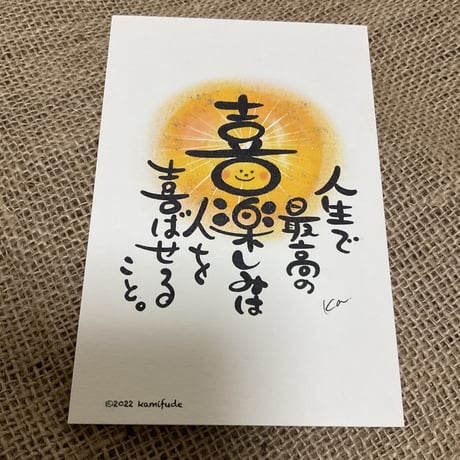 喜
人生で
最高の
楽しみは
人を
喜ばせる
こと。
©2022 kamifude